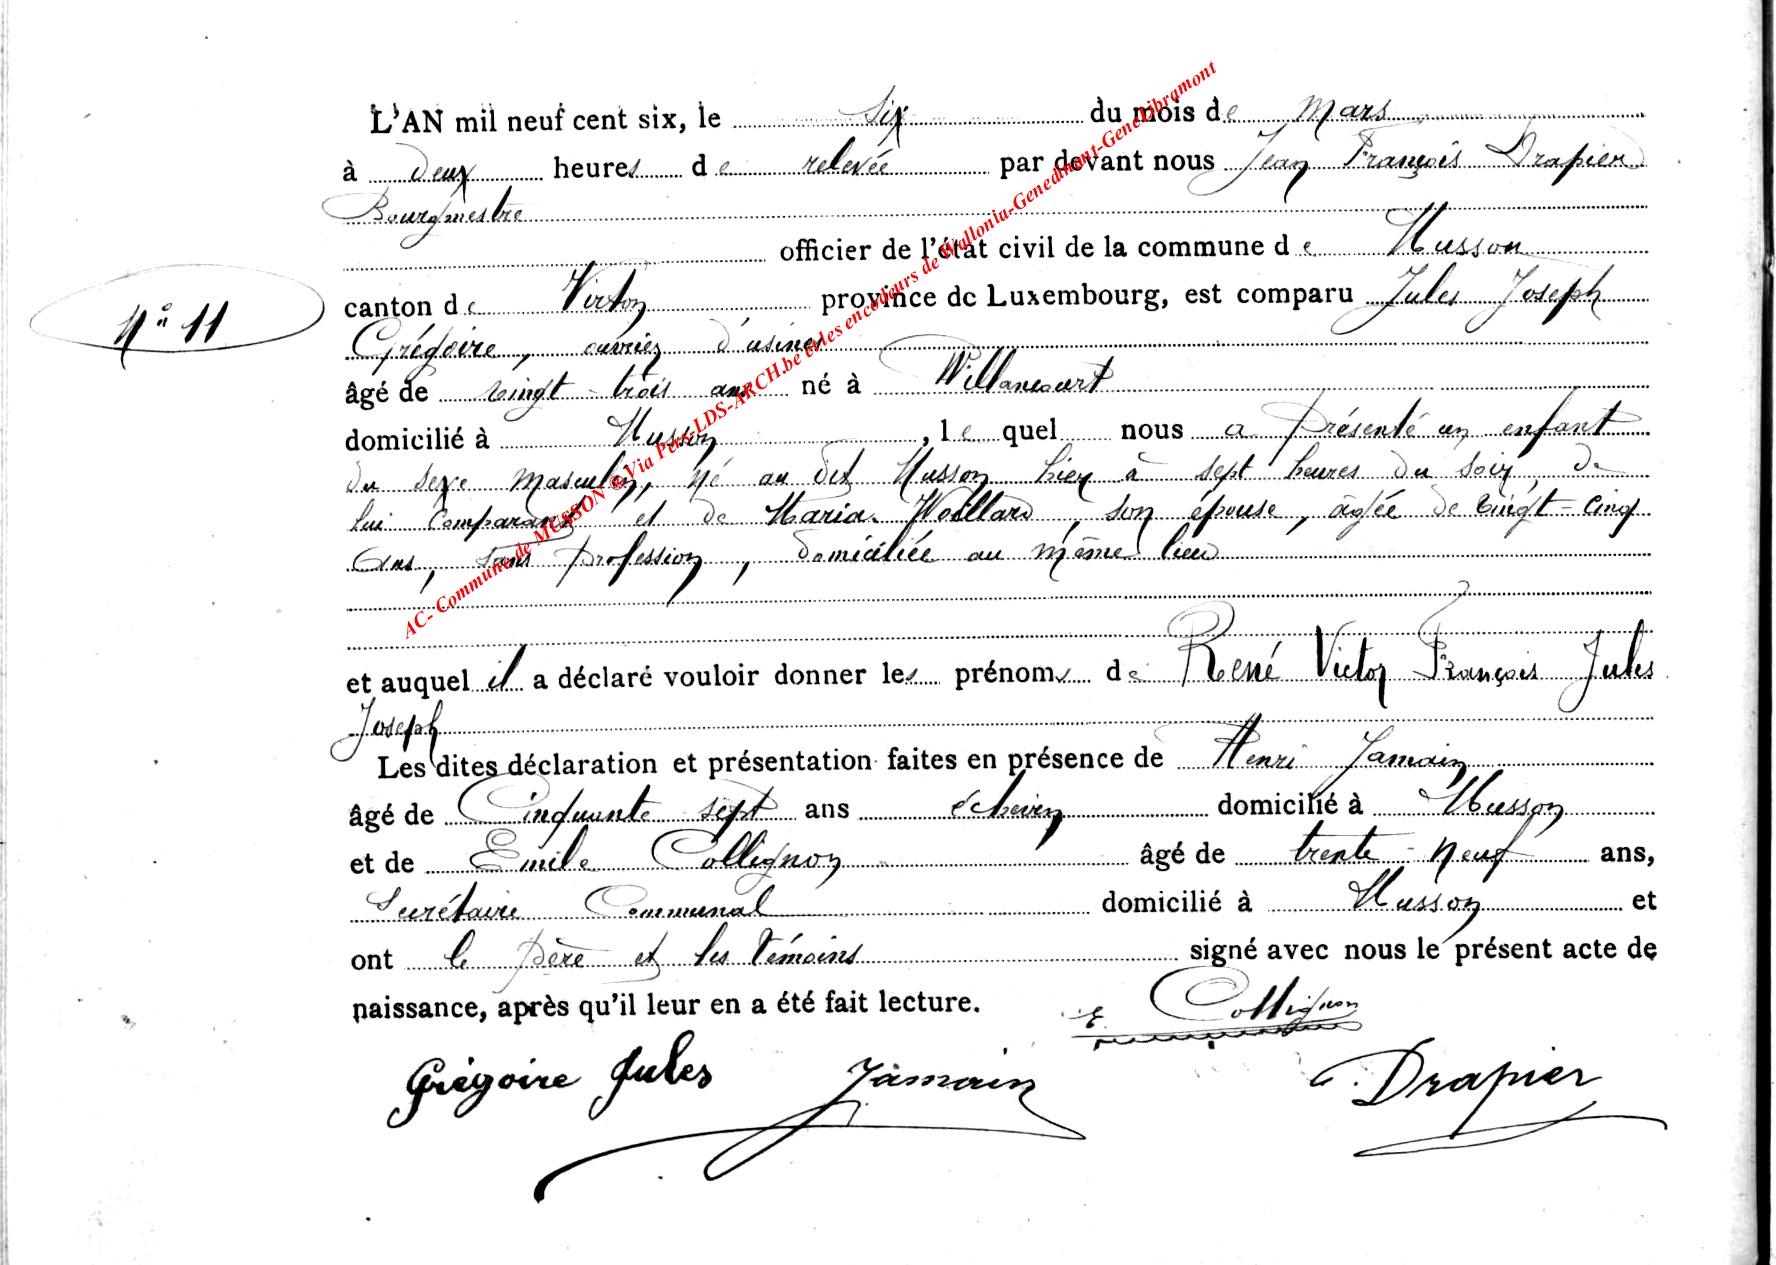 L'AN mil neuf cent six, le six du mois de mars
à deux heures de relevée par devant nous Jean François Drapier
Bourgmestre
officier de l'état civil de la commune de Musson
N° 11
canton de Virton province de Luxembourg, est comparu Jules Joseph
Grégoire, ouvrier d'usines
âgé de vingt-trois ans né à Willancourt
domicilié à Musson, le quel nous a présenté un enfant
du sexe masculin, né au dit Musson hier à sept heures du soir, de
lui comparant et de Maria Woillard, son épouse, âgée de vingt-cinq
ans, sans profession, domiciliée au même lieu
et auquel il a déclaré vouloir donner les prénoms de René Victor François Jules
Joseph
Les dites déclaration et présentation faites en présence de Henri Jamain
âgé de Cinquante sept ans échevin domicilié à Musson
et de Emile Collignon âgé de trente-neuf ans,
Secrétaire Communal domicilié à Musson et
ont le père et les témoins signé avec nous le présent acte de
naissance, après qu'il leur en a été fait lecture.
E. Collignon
Grégoire Jules Jamain Drapier
AC- Commune de MUSSON © Via Pers-LDS-ARCH.be et les encodeurs de Wallonia-Genedinant-GeneLibramont